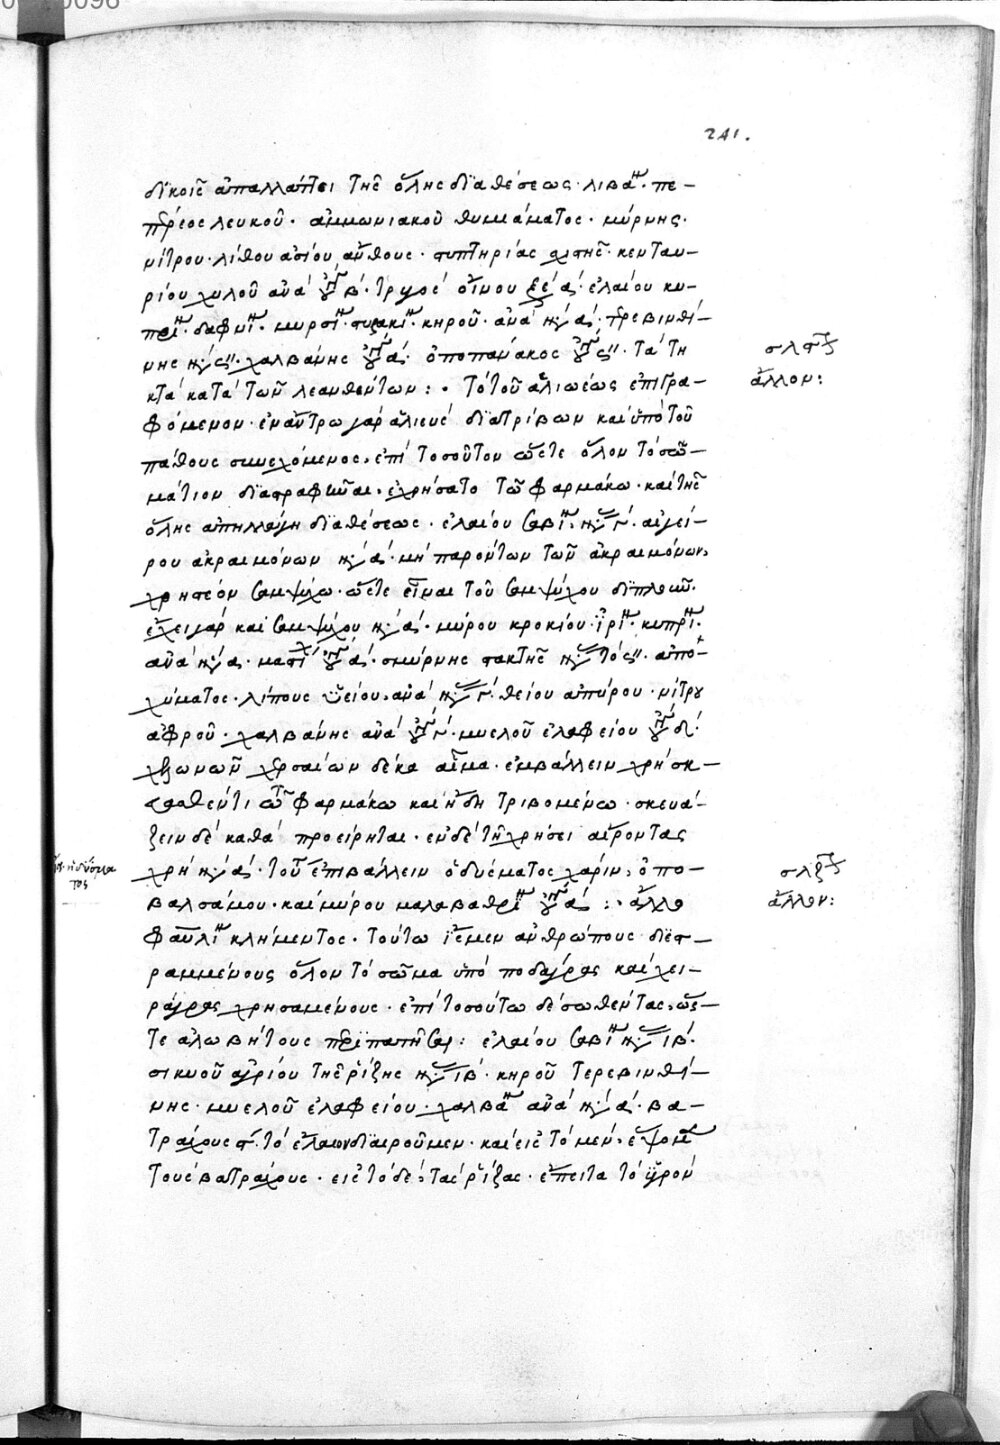 241.
δικοῖς ἀπαλλάττει τῆς ὅλης διαθέσεως · λιβά · πε-
πέρεος λευκοῦ · ἀμμωνιακοῦ θυμιάματος · μύρνης ·
νίτρου · λίθου ἀσίου ἄνθους · στυπτηρίας σχιστῆς · κενταυ-
ρίου χυλοῦ ἀνὰ β · τρυγὸς οἴνου α · ἐλαίου κυ-
δαφνι · μυρσι · κηροῦ · ἀνὰ α · τερεβινθί-
νης · χαλβάνης α · ὀποπάνακος · τὰ τη
κτὰ κατὰ τῶν λεανθέντων :
σλς
ἄλλον :
τὸ τοῦ ἁλιέως ἐπιγρα-
φόμενον · ἐν ἄντρω γὰρ ἁλιεὺς διατρίβων καὶ ὑπὸ τοῦ
πάθους συνεχόμενος · ἐπὶ τοσοῦτον ὥστε ὅλον τὸ σω-
μάτιον διαστραφῆναι · ἐχρήσατο τῶ φαρμάκω · καὶ τῆς
ὅλης ἀπηλλάγη διαθέσεως · ἐλαίου σαβι · αἰγεί-
ρου ἀκρεμόνων α · μὴ παρόντων τῶν ἀκρεμόνων
χρηστέον σαμψύχω · ὥστε εἶναι τοῦ σαμψύχου διπλοῦν ·
ἔχει γὰρ καὶ σαμψύχου α · μύρου κροκίου · ἰρι · κυπρι ·
ἀνὰ α · μαστι α · σμύρνης στακτῆς τὸ · ἀπο-
χύματος · λίπους ὑείου · ἀνὰ · θείου ἀπύρου · νίτρου
ἀφροῦ · χαλβάνης ἀνὰ · μυελοῦ ἐλαφείου δ ·
χελωνῶν χερσαίων δέκα αἷμα · ἐμβάλλειν χρὴ σκ-
τῶ φαρμάκω καὶ ἤδη τριβομένω · σκευά-
ζειν δὲ καθὰ προείρηται · ἐν δὲ τῇ χρήσει αἴροντας
χρὴ α · τοῦ ἐπιβάλλειν ὁδυέματος χάριν · ὀπο-
ἡδύσμα
τος
βαλσάμου · καὶ μύρου μαλαβαθρι α :
σλζ
ἄλλον :
ἄλλο
φαυλι κλήμεντος · τούτω ἴσμεν ἀνθρώπους διεσ-
ραμμένους ὅλον τὸ σῶμα ὑπὸ ποδάγρας καὶ χει-
ράγρας χρησαμένους · ἐπὶ τοσούτω δὲ σωθέντας · ὥς-
τε ἀλωβήτους περιπατῆσαι : ἐλαίου σαβι ιβ ·
σικυοῦ ἀγρίου τῆς ῥίζης ιβ · κηροῦ τερεβινθί-
νης · μυελοῦ ἐλαφείου · χαλβα ἀνὰ α · βα-
τράχους · τὸ ἔλαιον διαιροῦμεν · καὶ εἰς τὸ μὲν · ἕψομεν
τοὺς βατράχους · εἰς τὸ δὲ · τὰς ῥίζας · ἔπειτα τὸ ὑγρὸν